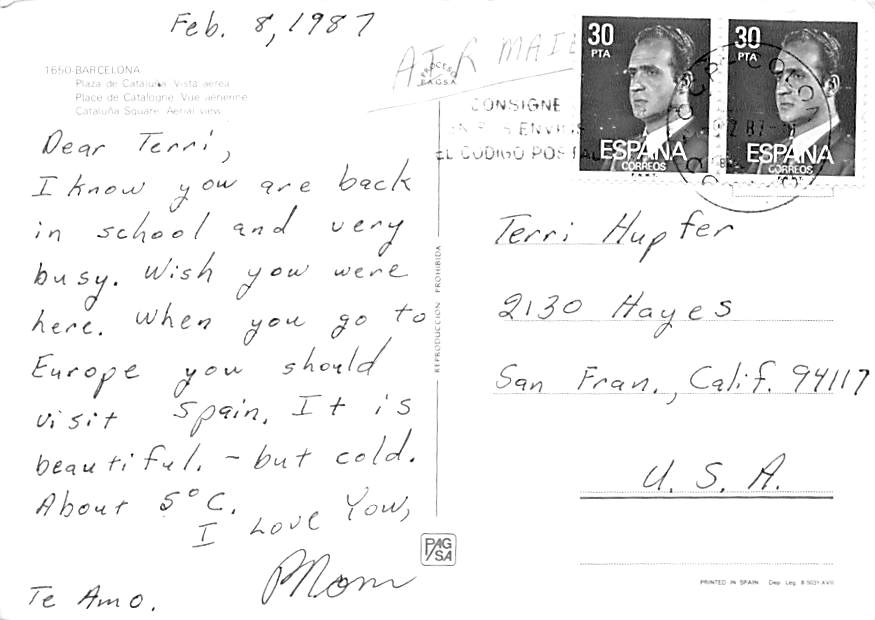 Feb. 8, 1987
AIR MAIL
1650-BARCELONA
Plaza de Cataluña. Vista aérea
Place de Catalogne. Vue aérienne
Cataluña Square. Aerial view
Dear Terri,
I know you are back
in school and very
busy. Wish you were
here. When you go to
Europe you should
visit Spain. It is
beautiful. - but cold.
About 5°C.
I Love You,
Mom
Te Amo.
REPRODUCCION PROHIBIDA
PAG
SA
CONSIGNE
ENVIOS
EL CODIGO POSTAL
30
PTA
ESPAÑA
CORREOS
30
PTA
ESPAÑA
CORREOS
Terri Hupfer
2130 Hayes
San Fran., Calif. 94117
U. S. A.
PRINTED IN SPAIN